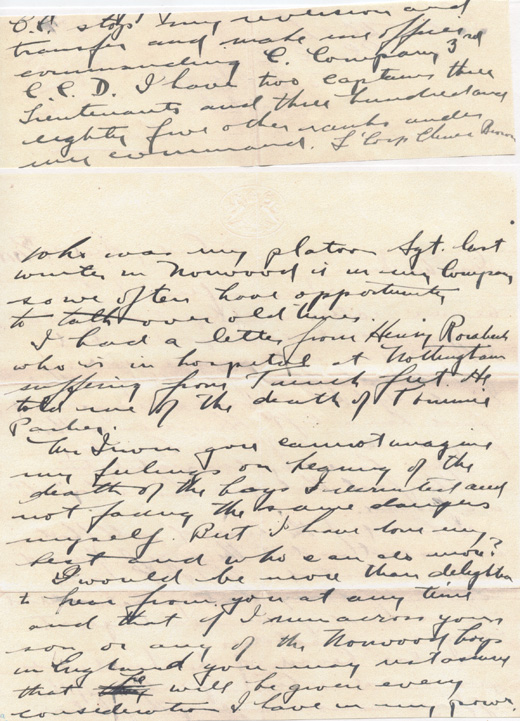 O.C. stops my reversion and
transfer and make me officer
commanding C. Company 3rd
C C D. I have two captains three
Lieutenants and three hundred and
eighty five other ranks under
my command. L'Corp Brown
who was my platoon Sgt. last
winter in Norwood is in my Company
so we often have opportunity
to talk over old times.
I had a letter from Henry
who is in hospital at Nottingham
suffering from Trench feet. He
told me of the death of Tommie
Parker.
Mr you cannot imagine
my feelings on hearing of the
death of the boys I recruited and
not facing the same dangers
myself. But I have done my
best and who can do more?
I would be more than delighted
to hear from you at any time
and that if I run across your
son or any of the Norwood boys
in England you may rest assured
that he will be given every
consideration I have in my power.